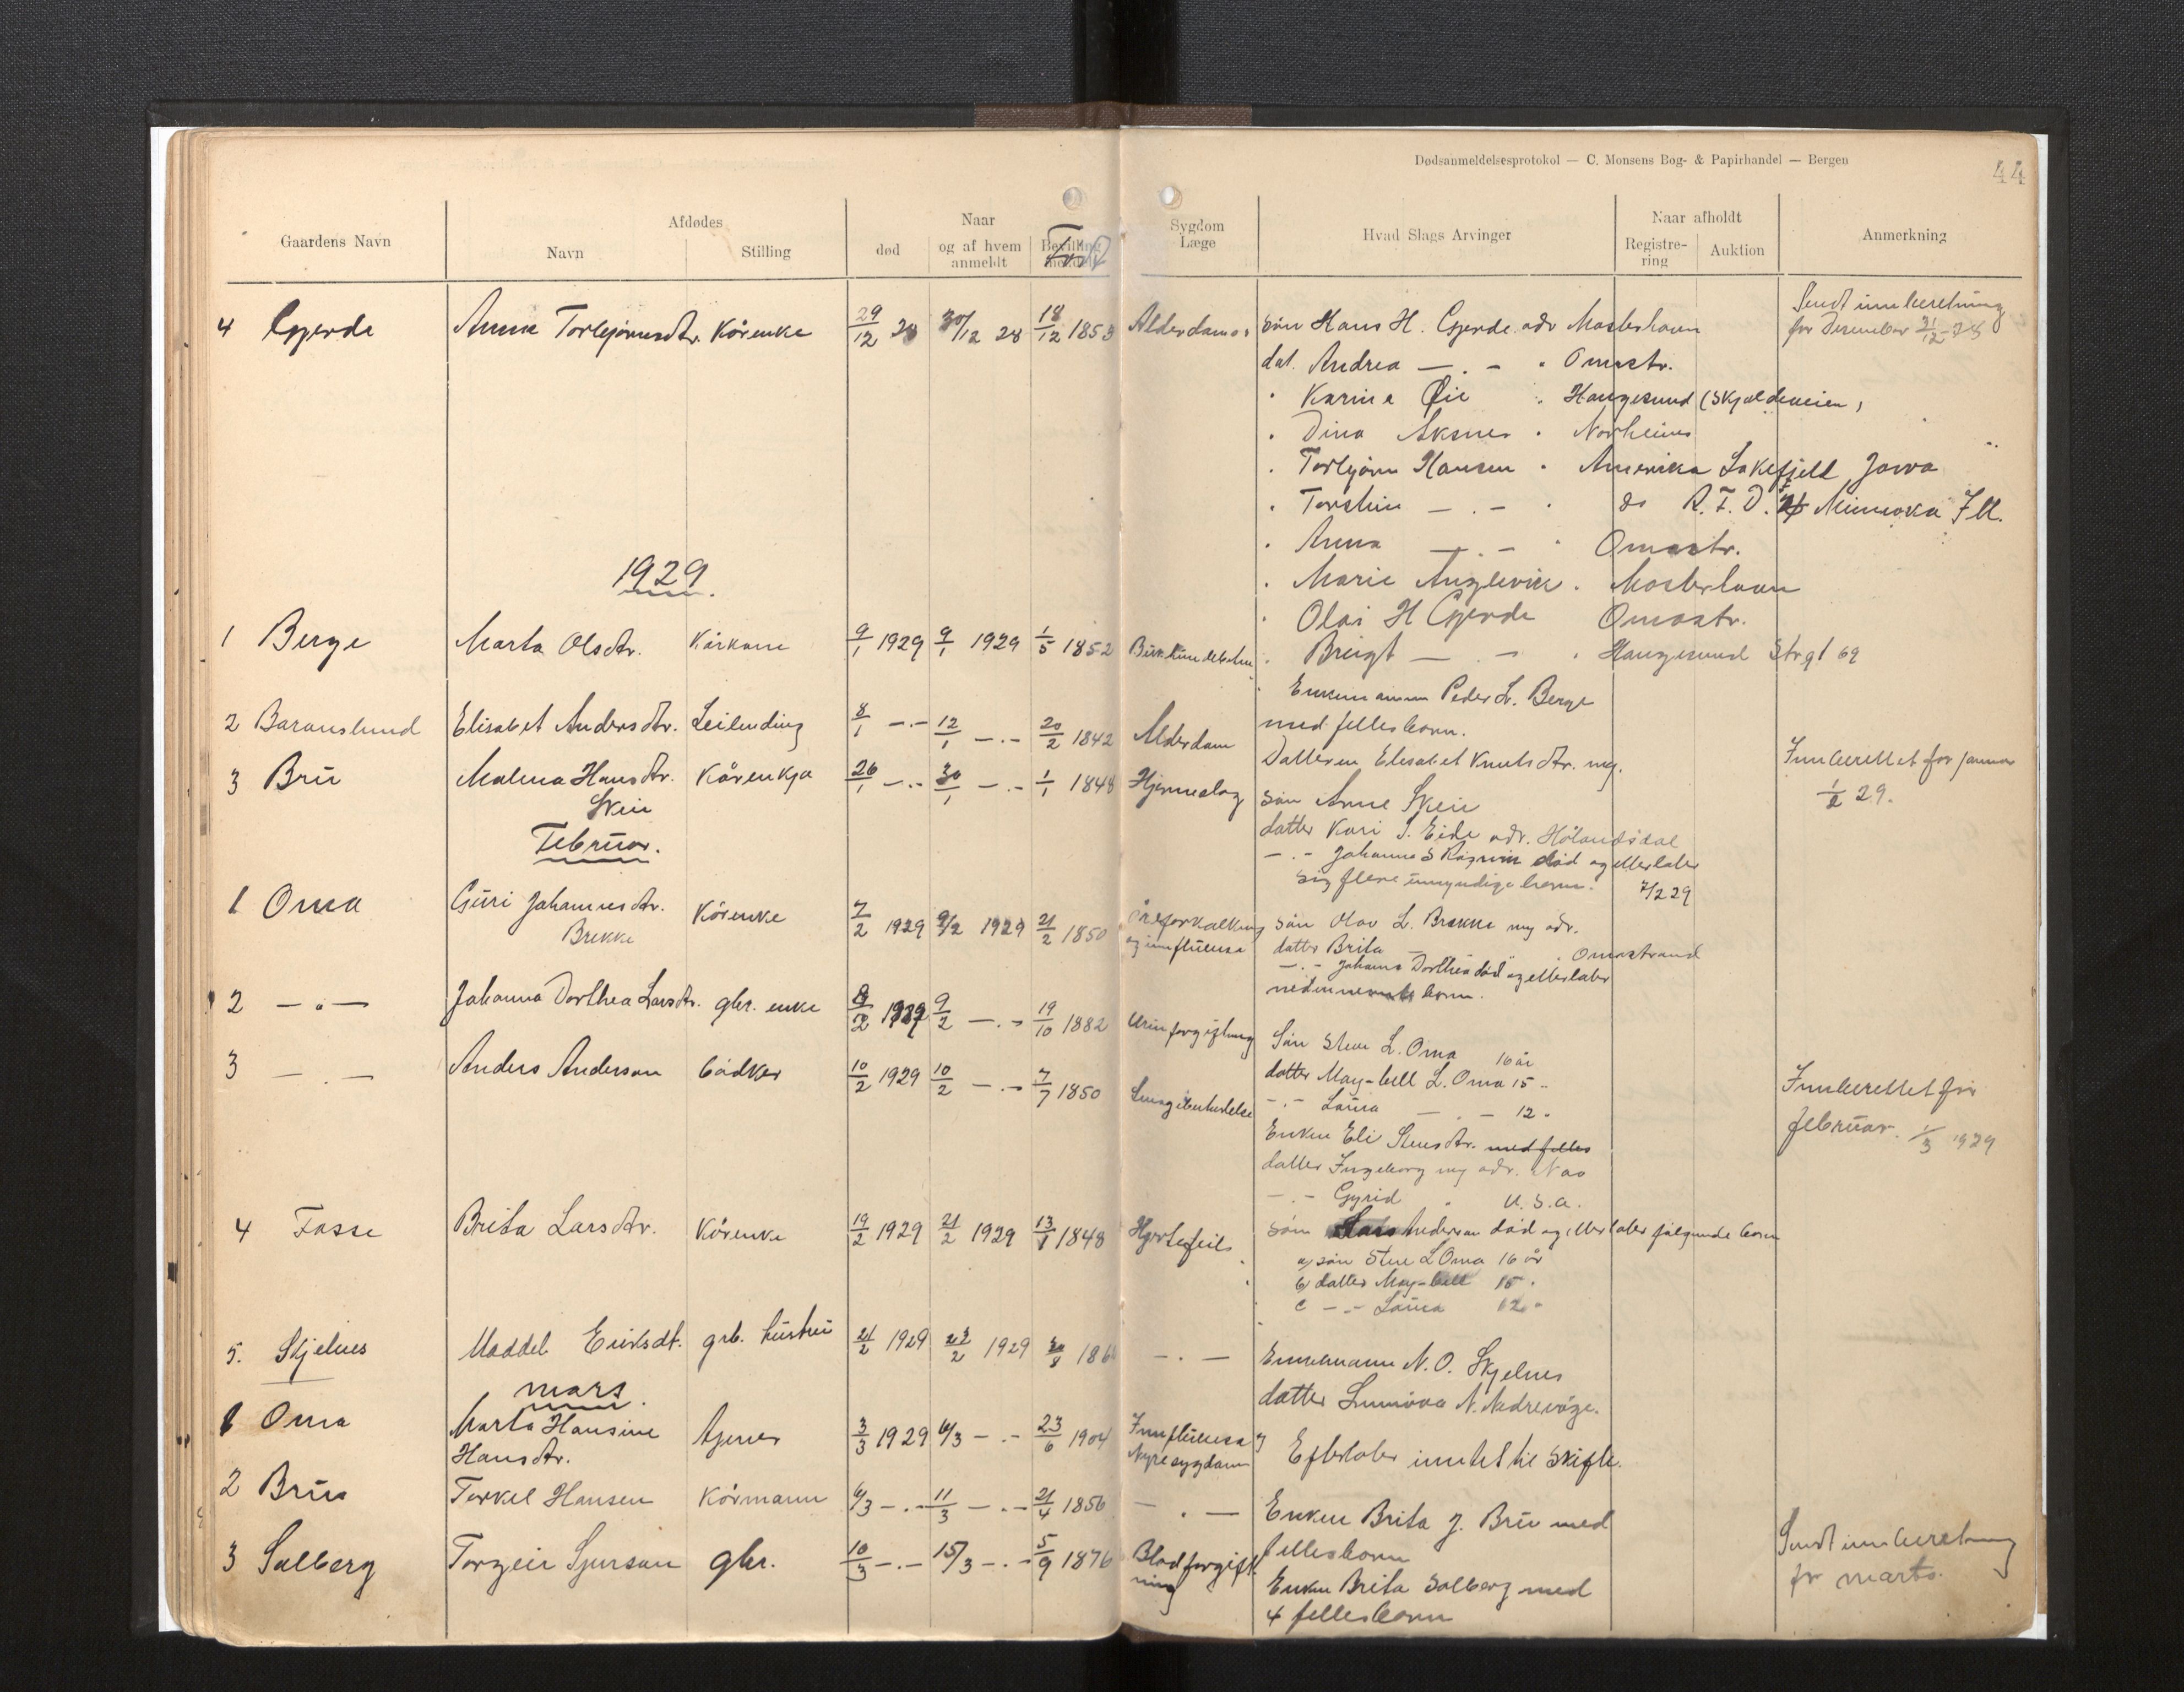 Dødsanmeldelsesprotokol — C. Monsens Bog- & Papirhandel — Bergen
44
Gaardens Navn
Afdødes
Navn
Stilling
Naar
død
og af hvem anmeldt
Bevilling
Sygdom
Læge
Hvad Slags Arvinger
Naar afholdt
Registre-
ring
Auktion
Anmerkning
4 Gjerde Anna Torbjørnsdtr. Kårenke 29/12 28 30/12 28 18/12 1853 Alderdoms søn Hans H. Gjerde adr Mosterhavn
Sendt innberetning
for Desember 31/12-28
dat. Andrea — . - " Omastr.
" Karina Øie " Haugesund (Skjoldeveien)
" Dina Aksnes " Norheims
" Torbjørn Hansen " Amerika Lakefjell Jowa
" Torstein — . - " do R.F.D. Minooka Ill.
" Anna — . - " Omastr.
1929
" Marie Anglevik " Mosterhavn
" Olai H Gjerde Omastr.
1 Berge Marta Olsdtr. Kårkone 9/1 1929 9/1 1929 1/5 1852 " Breigt — . - " Haugesund Strgt 69
Enkemann Peder L. Berge
med fellesborn.
2 Baronslund Elisabet Andersdtr. Leilending 8/1 -.- 12/1 -.- 20/2 1842 Alderdom
Datteren Elisabet Knutsdtr. mg.
3 Bru Malena Hansdtr. Kårenkja 26/1 -.- 30/1 -.- 1/1 1848 Hjerneslag søn Arne Skeie
Skeie
Innberettet for januar
1/2 29.
datter Kari S. Eide adr. Hålandsdal
-.- Johanna S Røgnvin død og etterlater
sig flere umyndige born. 7/2 29
Februar.
1 Oma Guri Johannesdtr. Kårenke 7/2 1929 9/2 1929 21/2 1850 Åreforkalkning søn Olav L. Brekke mg adr.
Brekke
og innfluensa datter Brita — " Omastrand
-.- Johanna Dorthea død og etterlater
nedennevnte born.
2 -"- Johanna Dorthea Larsdtr. gbr. enke 8/2 1929 9/2 -.- 19/10 1882 Urinforgiftning
Søn Steve L. Oma 16 år
datter May-bell L. Oma 15 -
-.- Laura — . - 12 -
3 -.- Anders Anderson bødker 10/2 1929 10/2 -.- 7/7 1850 Lungebetendelse
Enken Eli Stensdtr. med felles
datter Ingeborg mg adr. Nao
-.- Gyrid " U.S.A.
Innberettet for
februar. 1/3 1929
4 Fosse Brita Larsdtr. Kårenke 19/2 1929 21/2 1929 13/1 1848 Hjertefeil
søn Lars Anderson død og etterlater følgende born
a) søn Steve L Oma 16 år
b) datter May-bell 15 "
c -.- Laura 12 -
5. Skjelnes Maddel Eiriksdt. grb. hustru 21/2 1929 23/2 1929 -.- Enkemann N. O. Skjelnes
datter Sunnøva N. Nedrevåge.
mars.
1 Oma Marta Hansine Hansdtr. 3/3 1929 4/3 -.- 23/6 1904 Innfluensa og
Nyresygdom
Efterlater inntet til Skifte.
2 Bru Torkel Hansen Kårmann 4/3 -.- 11/3 -.- 21/4 1856 -.- Enken Brita J. Bru med
fellesborn
3 Solberg Torgeir Sjurson gbr. 10/3 -.- 15/3 -.- 5/9 1876 Blodforgift-
ning
Enken Brita Solberg med
4 fellesborn
Sendt innberetning
for marts.